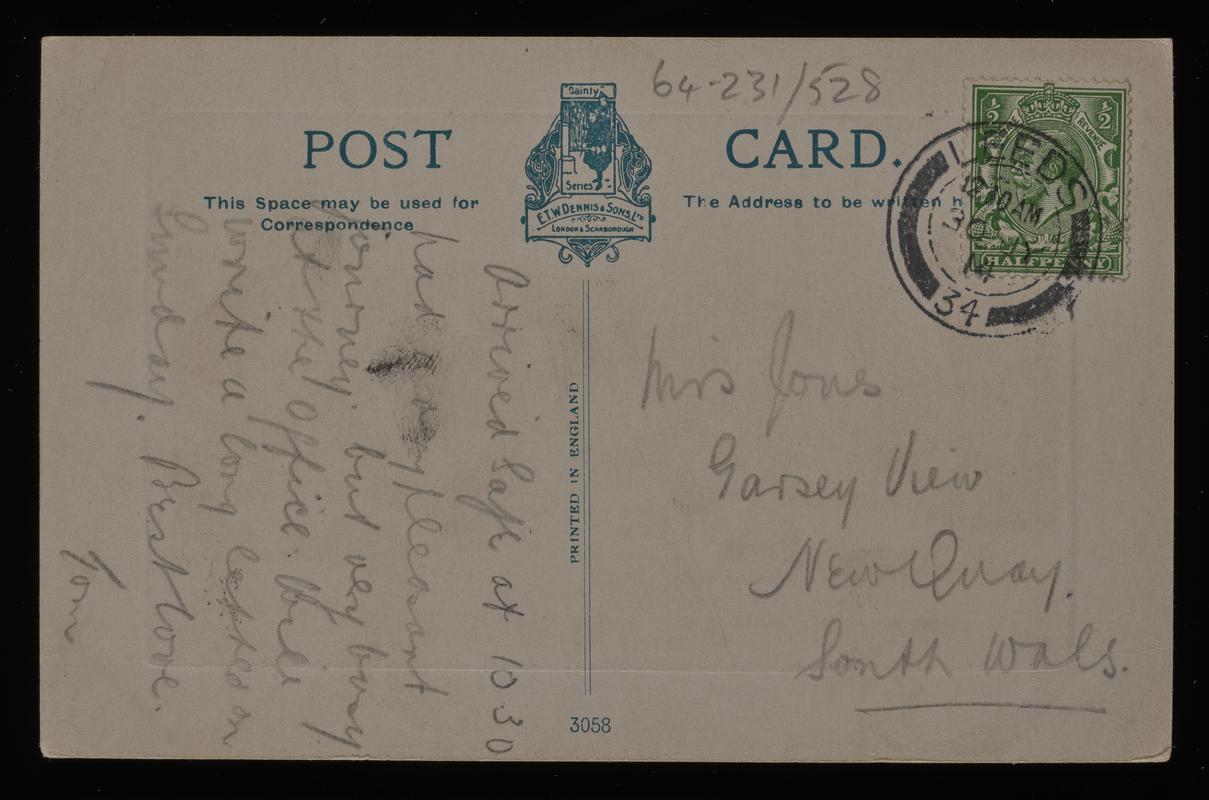 64-231/528
POST CARD.
"Dainty"
Series
E.T.W. DENNIS & SONS, LTD
LONDON & SCARBOROUGH
This Space may be used for
Correspondence
The Address to be written h
½ ½
REVENUE
HALFPENNY
LEEDS
AM
14
34
Arrived Safe at 10 30
had a very pleasant
journey. but very busy
at the office. Will
write a long letter on
Sunday. Best love.
Tom
PRINTED IN ENGLAND
3058
Mrs Jones
Garsey View
New Quay.
South Wales.